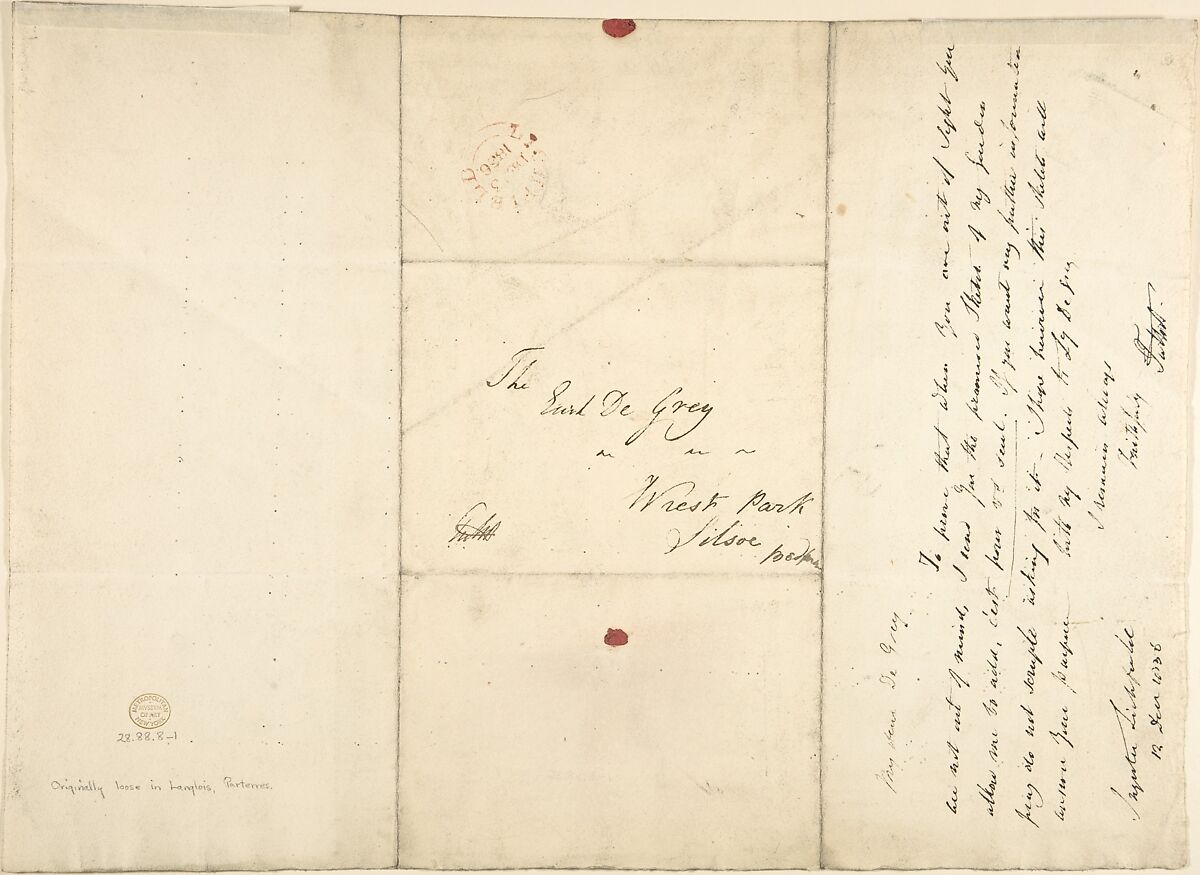 METROPOLITAN
MUSEUM
OF ART
NEW YORK
28.88.8-1
Originally loose in Langlois, Parterres.
1836
The
Earl De Grey
Wrest Park
Silsoe
My dear De Grey
To prove that when you are out of sight you
are not out of mind, I send you the promised sketch of my garden
allow me to add, c'est pour vs seul. If you want any further information
pray do not scruple asking for it - I hope however this sketch will
answer your purpose with my respects to Ly De Grey
I remain always
Faithfully
Ingestre Lichfield
12 Dec 1836